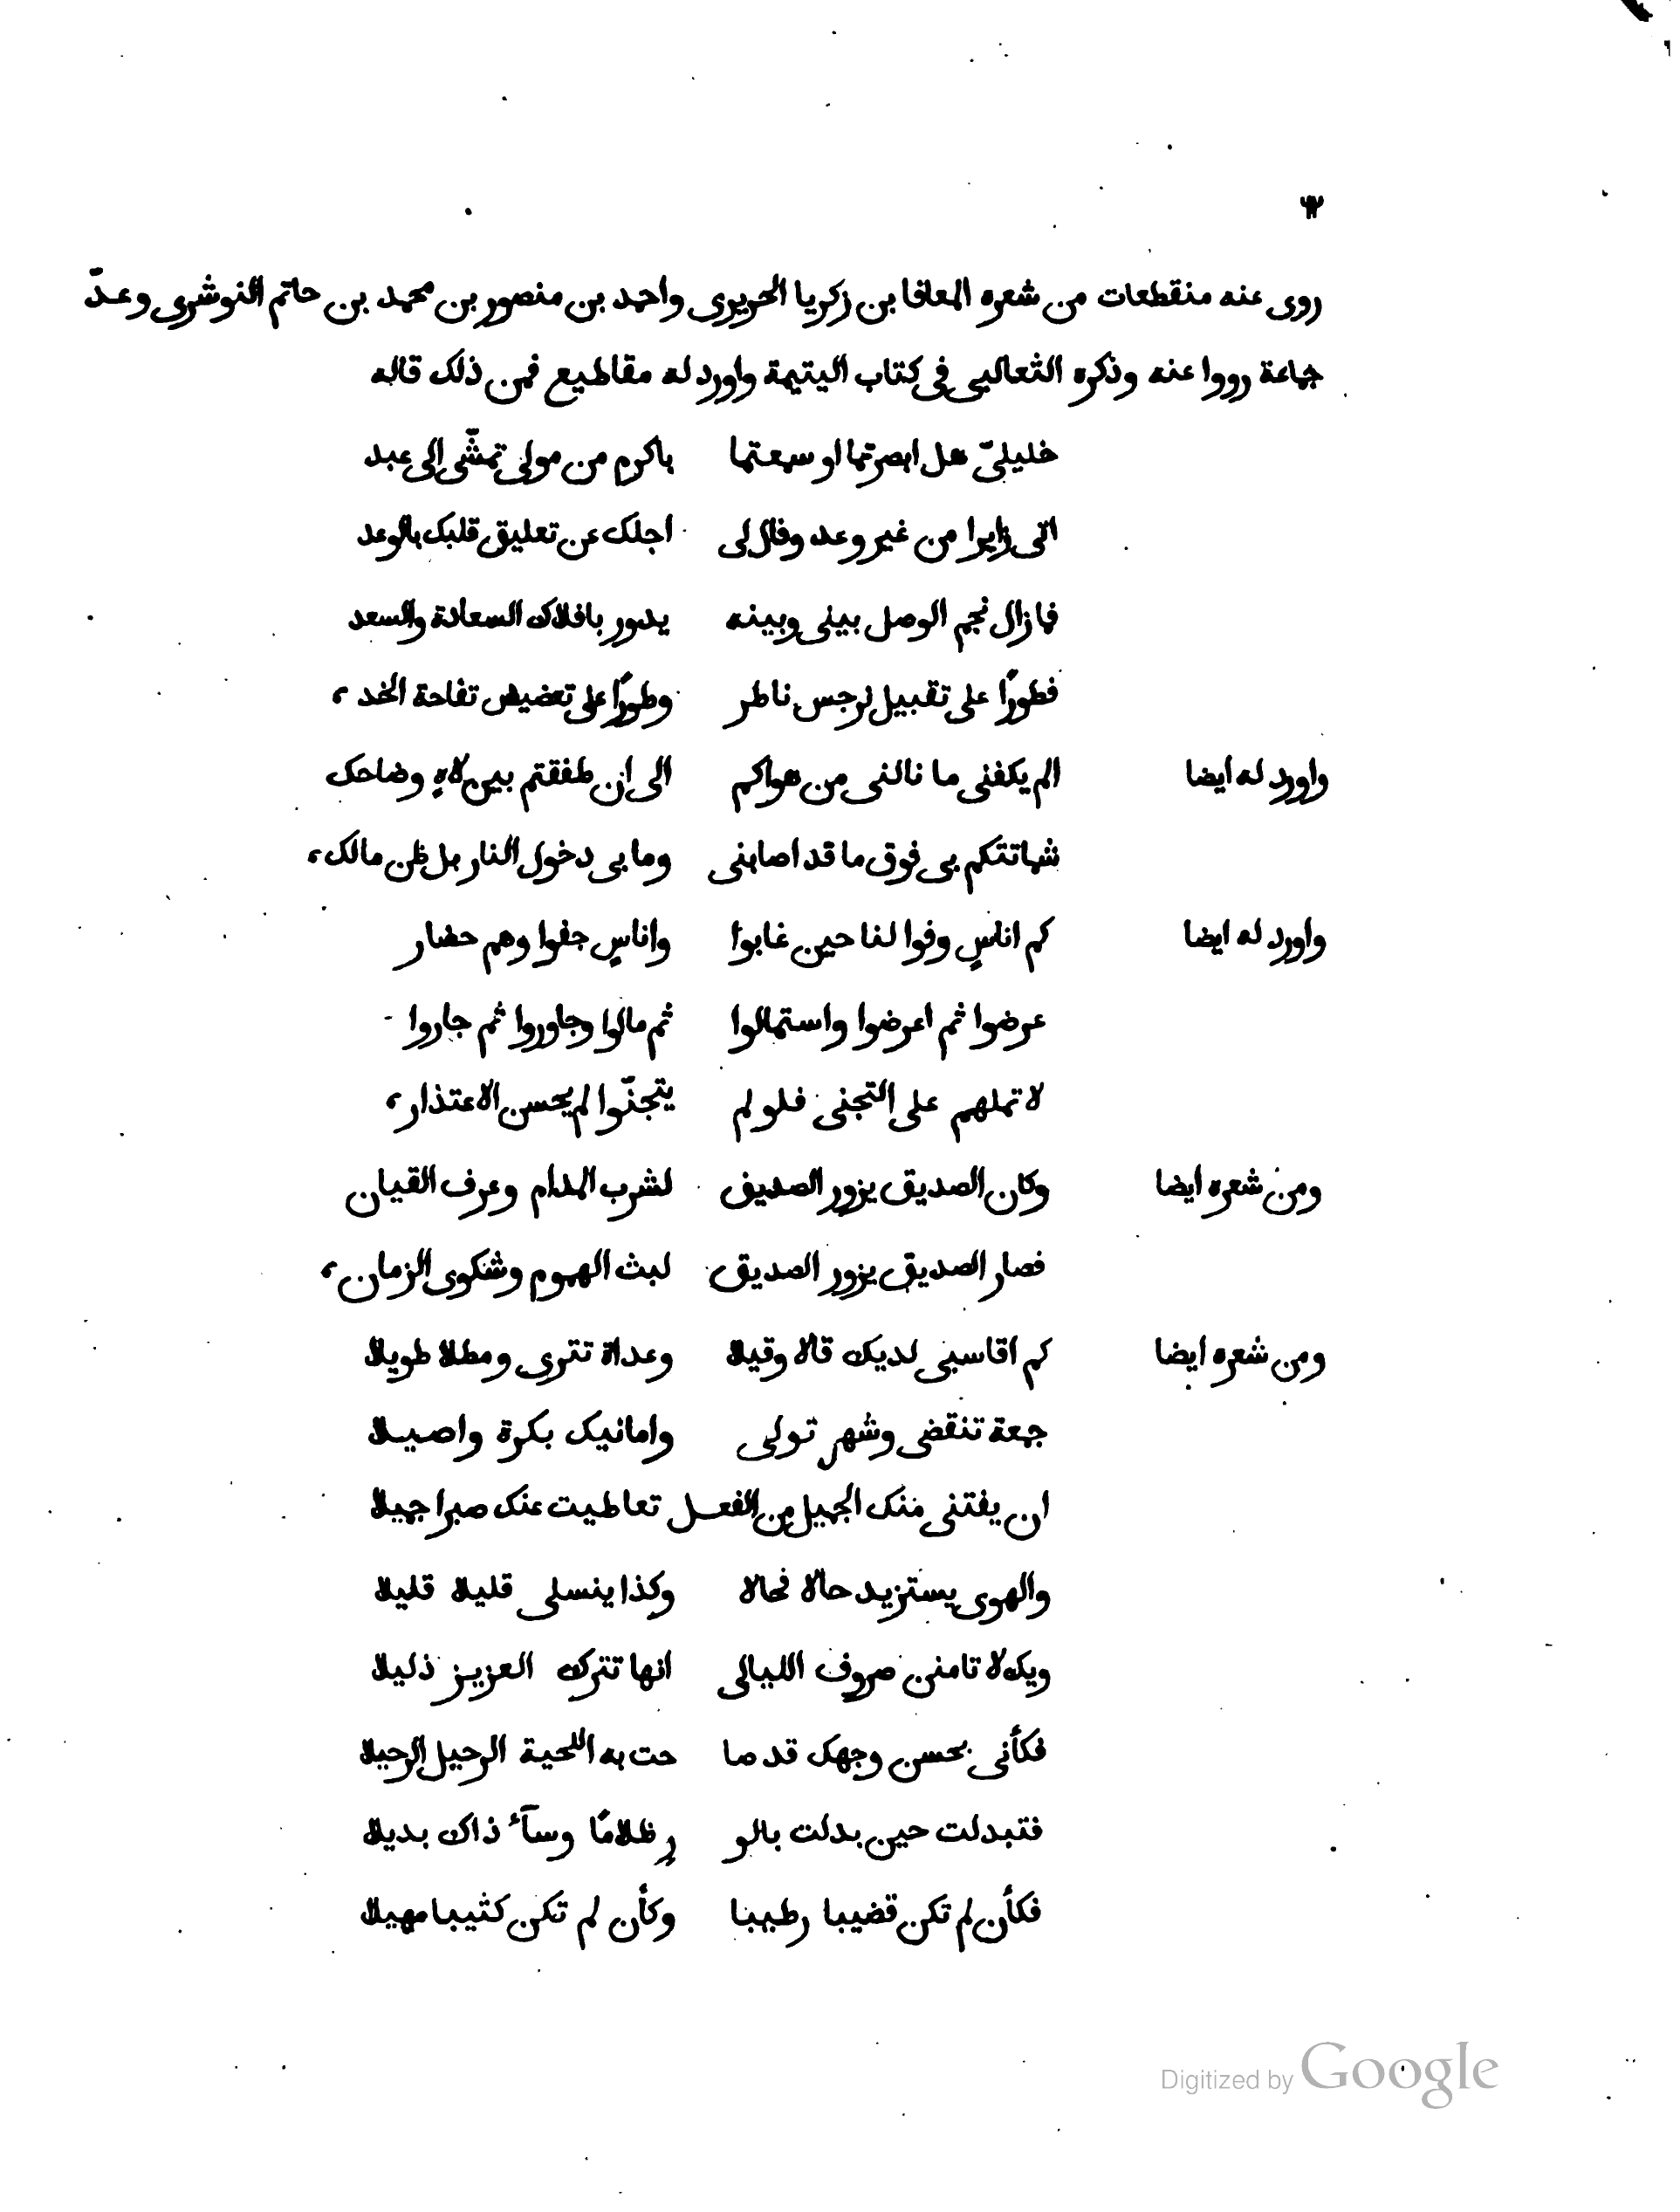 ٣
روى عنه منقطعات من شعره المعافا بن زكريا الحريرى واحمد بن منصور بن محمد بن حاتم النوشرى وعدّ
جماعة رووا عنه وذكره الثعالبى فى كتاب اليتيمة واورد له مقاطيع فمن ذلك قاله
خليلىّ هل ابصرتما او سمعتما باكرم من مولى تمشّى الى عبد
اتى زايرا من غير وعد وقال لى اجلك عن تعليق قلبك بالوعد
فما زال نجم الوصل بينى وبينه يدور بافلاك السعادة والسعد
فطورًا على تقبيل نرجس ناظر وطورًا على تعضيض تفاحة الخد
واورد له ايضا الم يكفنى ما نالنى من هواكم الى ان طفقتم بين لاهٍ وضاحك
شماتتكم بى فوق ما قد اصابنى وما بى دخول النار بل طن مالك
واورد له ايضا كم اناسٍ وفوا لنا حين غابوا واناسٍ جفوا وهم حضار
عرضوا ثم اعرضوا واستمالوا ثم مالوا وجاوروا ثم جاروا
لا تملهم على التجنى فلو لم يتجنّوا لم يحسن الاعتذار
ومن شعره ايضا وكان الصديق يزور الصديق لشرب المدام وعرف القيان
فصار الصديق يزور الصديق لبث الهموم وشكوى الزمان
ومن شعره ايضا كم اقاسى لديك قالا وقيلا وعداة تترى ومطلا طويلا
جمعة تنقضى وشهر تولى وامانيك بكرة واصيلا
ان يفتنى منك الجميل من الفعل تعاطيت عنك صبرا جميلا
والهوى يستزيد حالا فحالا وكذا ينسلى قليلا قليلا
ويك لا تامنن صروف الليالى انها تترك العزيز ذليلا
فكأنى بحسن وجهك قد صا حت به اللحية الرحيل الرحيلا
فتبدلت حين بدلت بالنو رٍ ظلامًا وسآء ذاك بديلا
فكأن لم تكن قضيبا رطيبا وكأن لم تكن كثيبا مهيلا
Digitized by Google